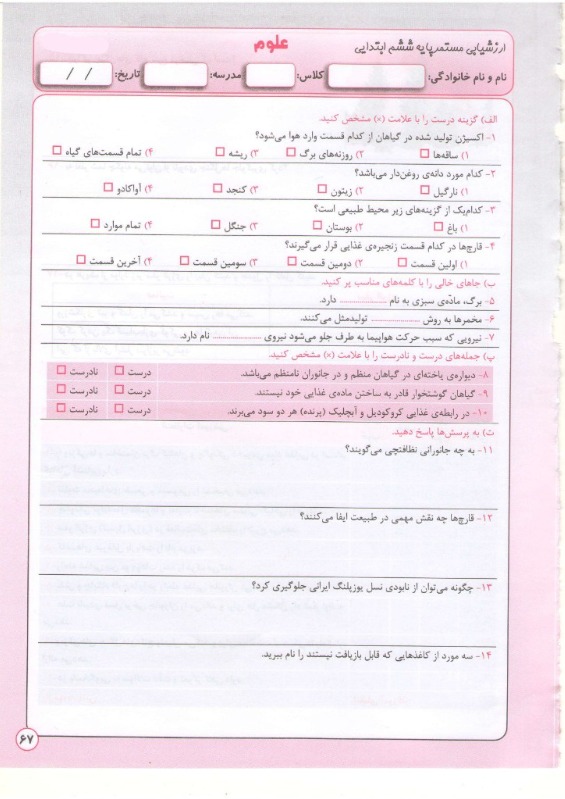 ارزشیابی مستمر پایه ششم ابتدایی
علوم
نام و نام خانوادگی: کلاس: مدرسه: تاریخ: / /
الف) گزینه درست را با علامت (×) مشخص کنید.
۱- اکسیژن تولید شده در گیاهان از کدام قسمت وارد هوا می‌شود؟
۱) ساقه‌ها ۲) روزنه‌های برگ ۳) ریشه ۴) تمام قسمت‌های گیاه
۲- کدام مورد دانه‌ی روغن‌دار می‌باشد؟
۱) نارگیل ۲) زیتون ۳) کنجد ۴) آواکادو
۳- کدام‌یک از گزینه‌های زیر محیط طبیعی است؟
۱) باغ ۲) بوستان ۳) جنگل ۴) تمام موارد
۴- قارچ‌ها در کدام قسمت زنجیره‌ی غذایی قرار می‌گیرند؟
۱) اولین قسمت ۲) دومین قسمت ۳) سومین قسمت ۴) آخرین قسمت
ب) جاهای خالی را با کلمه‌های مناسب پر کنید.
۵- برگ، مادّه‌ی سبزی به نام .................... دارد.
۶- مخمرها به روش .................... تولیدمثل می‌کنند.
۷- نیرویی که سبب حرکت هواپیما به طرف جلو می‌شود نیروی .................... نام دارد.
پ) جمله‌های درست و نادرست را با علامت (×) مشخص کنید.
۸- دیواره‌ی یاخته‌ای در گیاهان منظم و در جانوران نامنظم می‌باشد. درست نادرست
۹- گیاهان گوشتخوار قادر به ساختن ماده‌ی غذایی خود نیستند. درست نادرست
۱۰- در رابطه‌ی غذایی کروکودیل و آبچلیک (پرنده) هر دو سود می‌برند. درست نادرست
ت) به پرسش‌ها پاسخ دهید.
۱۱- به چه جانورانی نظافتچی می‌گویند؟
۱۲- قارچ‌ها چه نقش مهمی در طبیعت ایفا می‌کنند؟
۱۳- چگونه می‌توان از نابودی نسل یوزپلنگ ایرانی جلوگیری کرد؟
۱۴- سه مورد از کاغذهایی که قابل بازیافت نیستند را نام ببرید.
۶۷